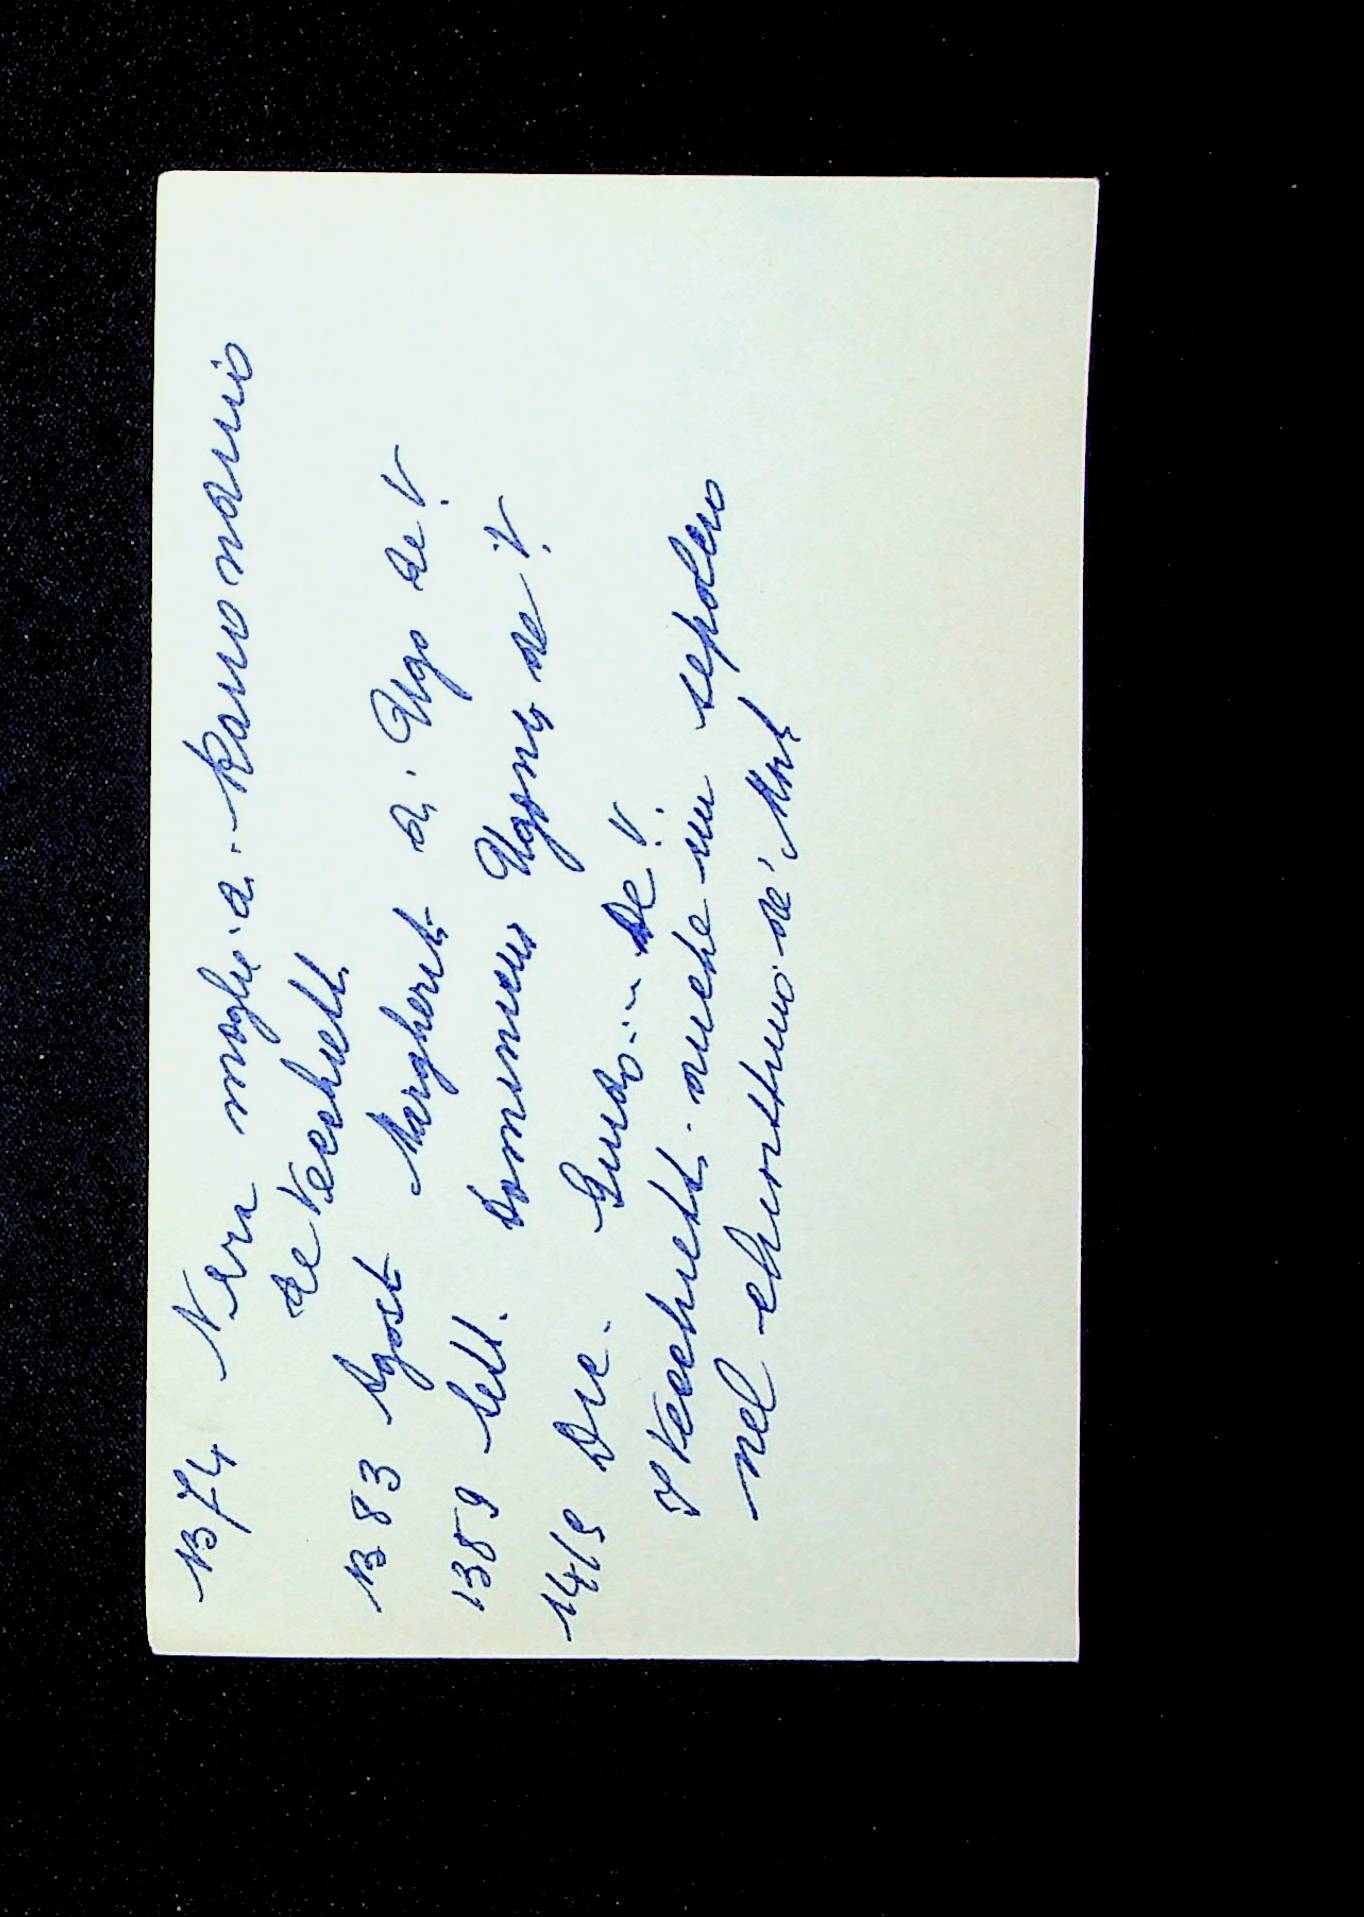 1374 Nera moglie di Rano nannio
de Vecchietti
1383 Agost Margherita di Ugo de' V.
1389 Sett. Domenico Ugonis de V.
1413 Dic. Guido de' V.
I Vecchietti anche un sepolcro
nel chiostrino de' Morti